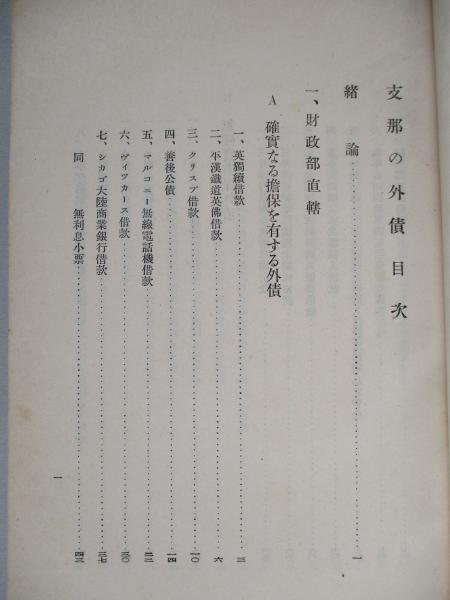 支那の外債 目次
緒論……一
一、財政部直轄
A 確實なる擔保を有する外債
一、英獨續借款……三
二、平漢鐵道英佛借款……六
三、クリスプ借款……一〇
四、善後公債……一四
五、マルコニー無線電話機借款……二二
六、ヴィツカース借款……三〇
七、シカゴ大陸商業銀行借款……三七
同 無利息小票……四三
一